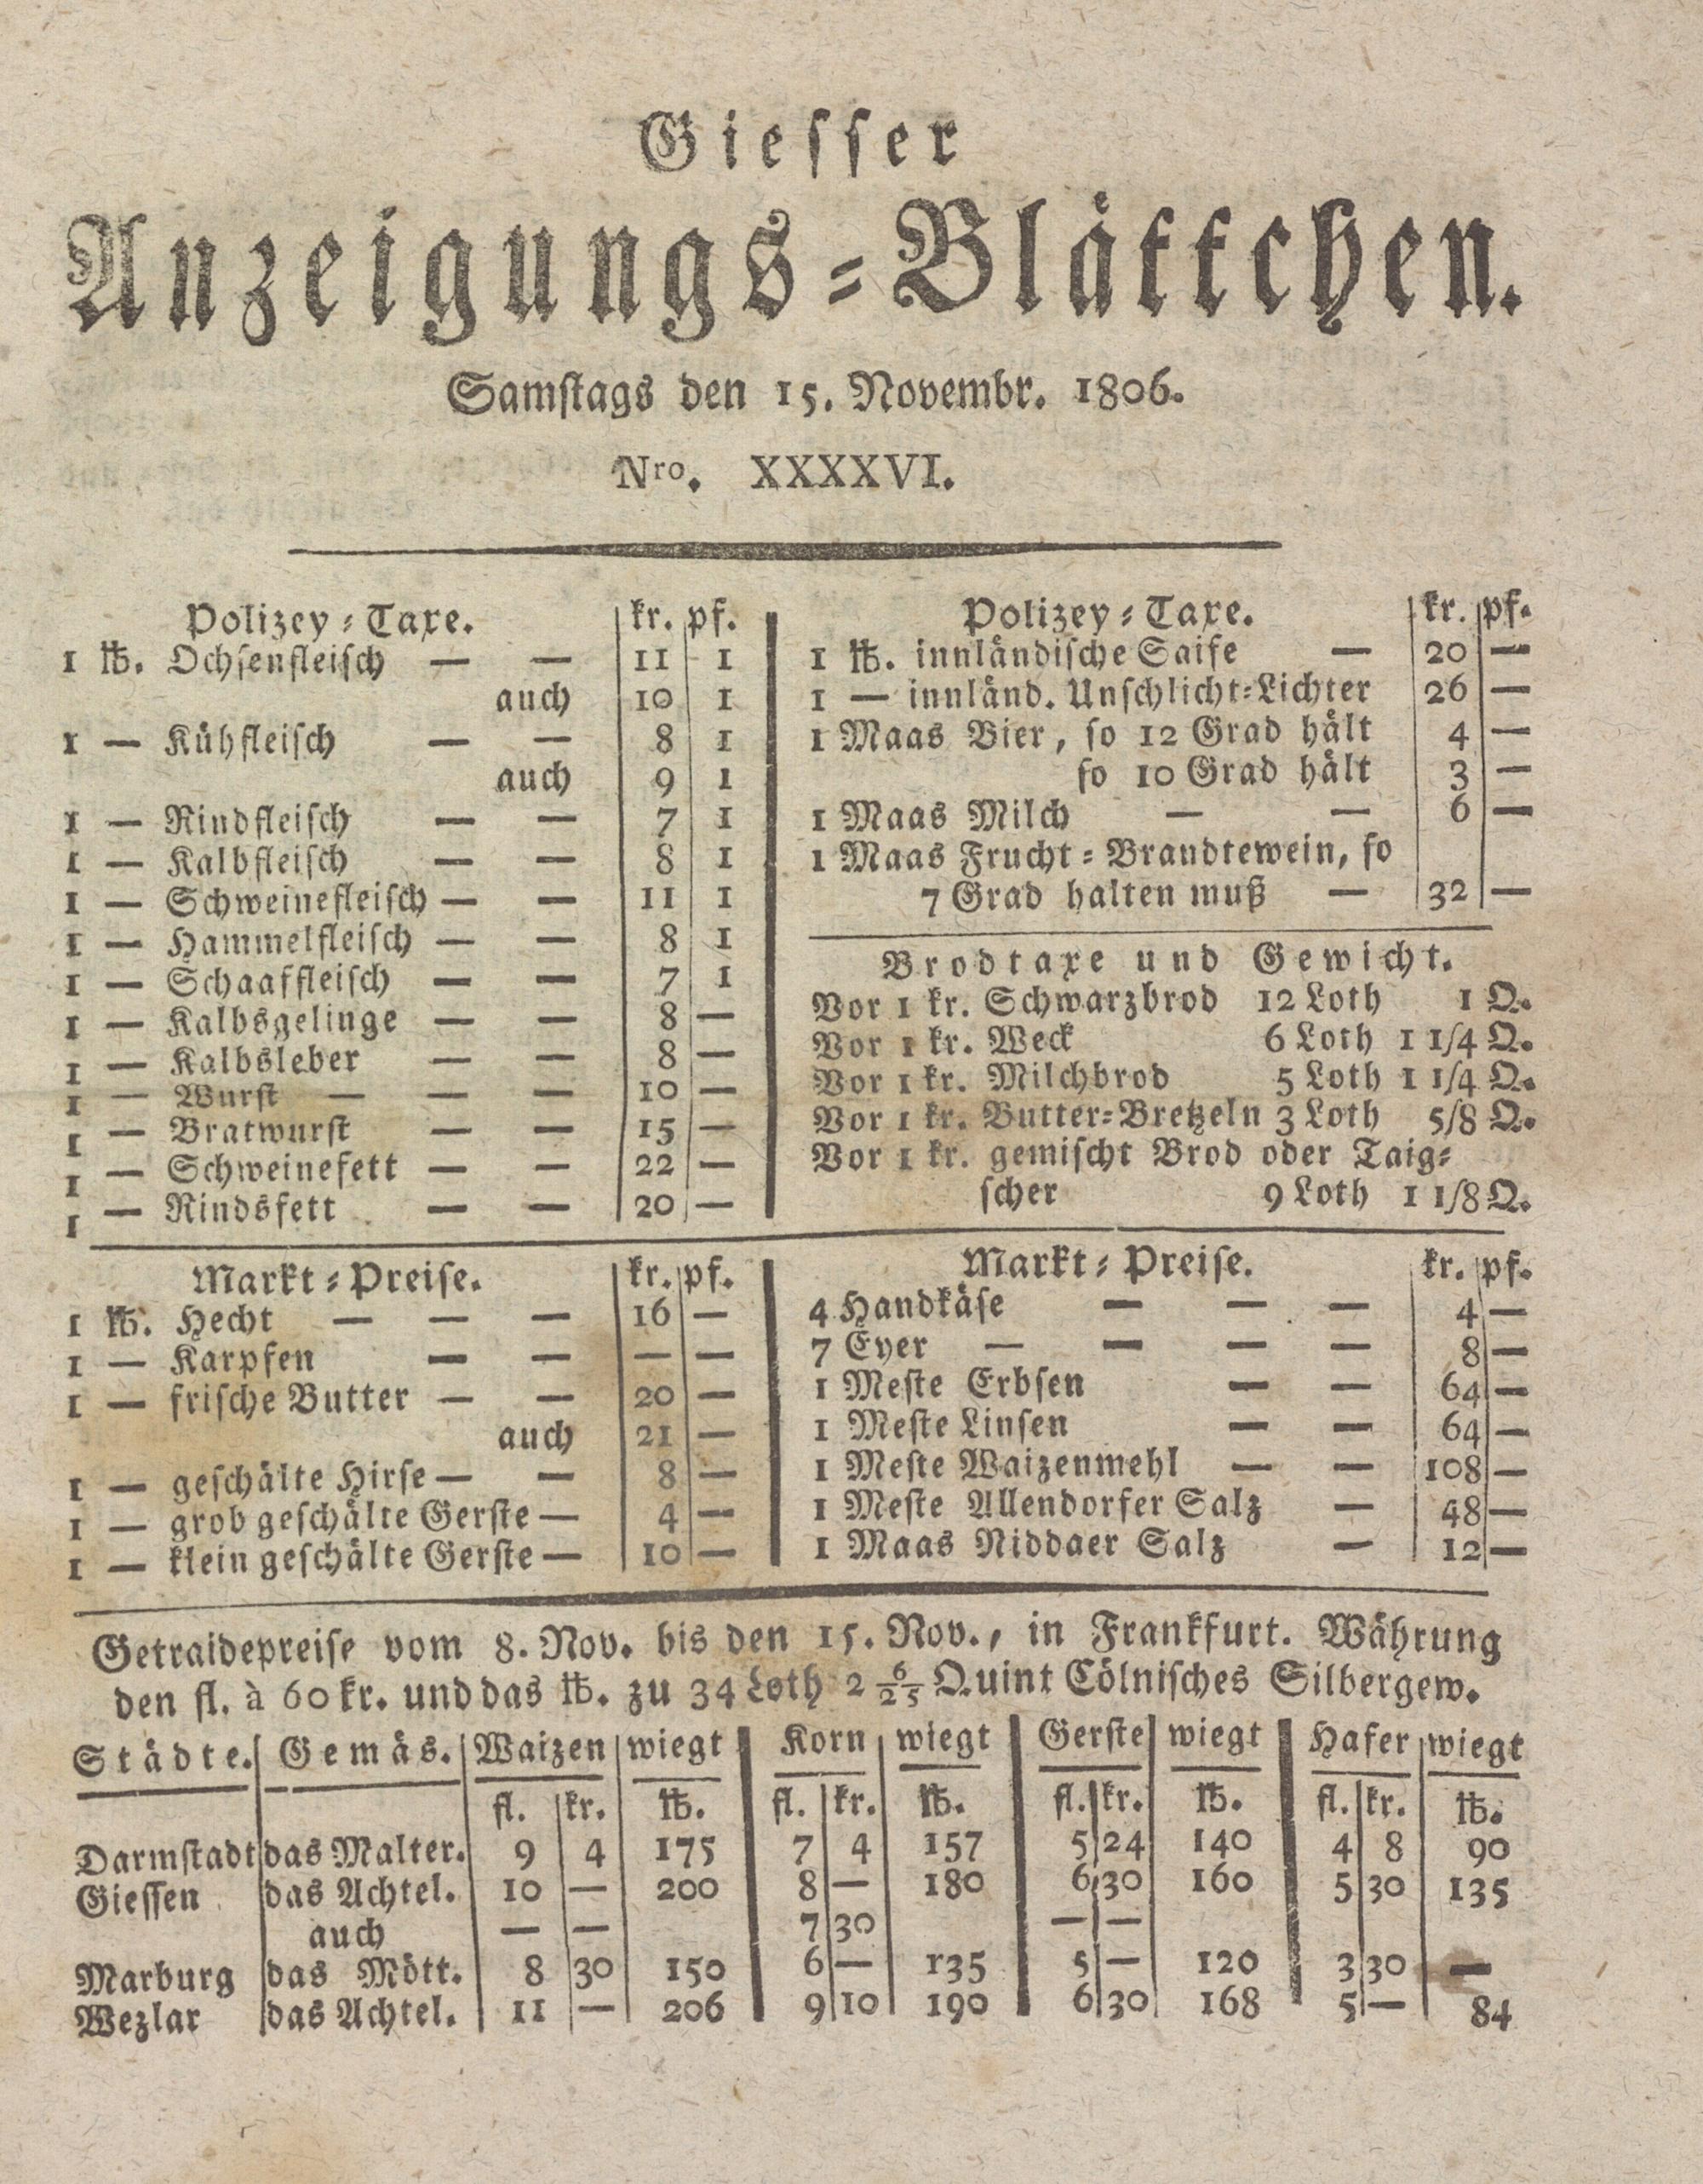 Giesser
Anzeigungs-Blättchen.
Samstags den 15. Novembr. 1806.
Nro. XXXXVI.
Polizey-Taxe. kr. pf.
1 ℔. Ochsenfleisch — — 11 1
auch 10 1
1 — Kühfleisch — — 8 1
auch 9 1
1 — Rindfleisch — — 7 1
1 — Kalbfleisch — — 8 1
1 — Schweinefleisch — — 11 1
1 — Hammelfleisch — — 8 1
1 — Schaaffleisch — — 7 1
1 — Kalbsgelinge — — 8 —
1 — Kalbsleber — — 8 —
1 — Wurst — — — 10 —
1 — Bratwurst — — 15 —
1 — Schweinefett — — 22 —
1 — Rindsfett — — 20 —
Polizey-Taxe. kr. pf.
1 ℔. innländische Saife — 20 —
1 — innländ. Unschlicht-Lichter 26 —
1 Maas Bier, so 12 Grad hält 4 —
so 10 Grad hält 3 —
1 Maas Milch — — 6 —
1 Maas Frucht-Brandtewein, so
7 Grad halten muß — 32 —
Brodtaxe und Gewicht.
Vor 1 kr. Schwarzbrod 12 Loth 1 Q.
Vor 1 kr. Weck 6 Loth 1 1/4 Q.
Vor 1 kr. Milchbrod 5 Loth 1 1/4 Q.
Vor 1 kr. Butter-Bretzeln 3 Loth 5/8 Q.
Vor 1 kr. gemischt Brod oder Taig-
scher 9 Loth 1 1/8 Q.
Markt-Preise. kr. pf.
1 ℔. Hecht — — — 16 —
1 — Karpfen — — — —
1 — frische Butter — — 20 —
auch 21 —
1 — geschälte Hirse — — 8 —
1 — grob geschälte Gerste — 4 —
1 — klein geschälte Gerste — 10 —
Markt-Preise. kr. pf.
4 Handkäse — — — 4 —
7 Eyer — — — — 8 —
1 Meste Erbsen — — 64 —
1 Meste Linsen — — 64 —
1 Meste Waizenmehl — — 108 —
1 Meste Allendorfer Salz — 48 —
1 Maas Niddaer Salz — 12 —
Getraidepreise vom 8. Nov. bis den 15. Nov., in Frankfurt. Währung
den fl. à 60 kr. und das ℔. zu 34 Loth 2 6/25 Quint Cölnisches Silbergew.
Städte. Gemäs. Waizen wiegt Korn wiegt Gerste wiegt Hafer wiegt
fl. kr. ℔. fl. kr. ℔. fl. kr. ℔. fl. kr. ℔.
Darmstadt das Malter. 9 4 175 7 4 157 5 24 140 4 8 90
Giessen das Achtel. 10 — 200 8 — 180 6 30 160 5 30 135
auch — — 7 30 — —
Marburg das Mött. 8 30 150 6 — 135 5 — 120 3 30 —
Wezlar das Achtel. 11 — 206 9 10 190 6 30 168 5 — 84